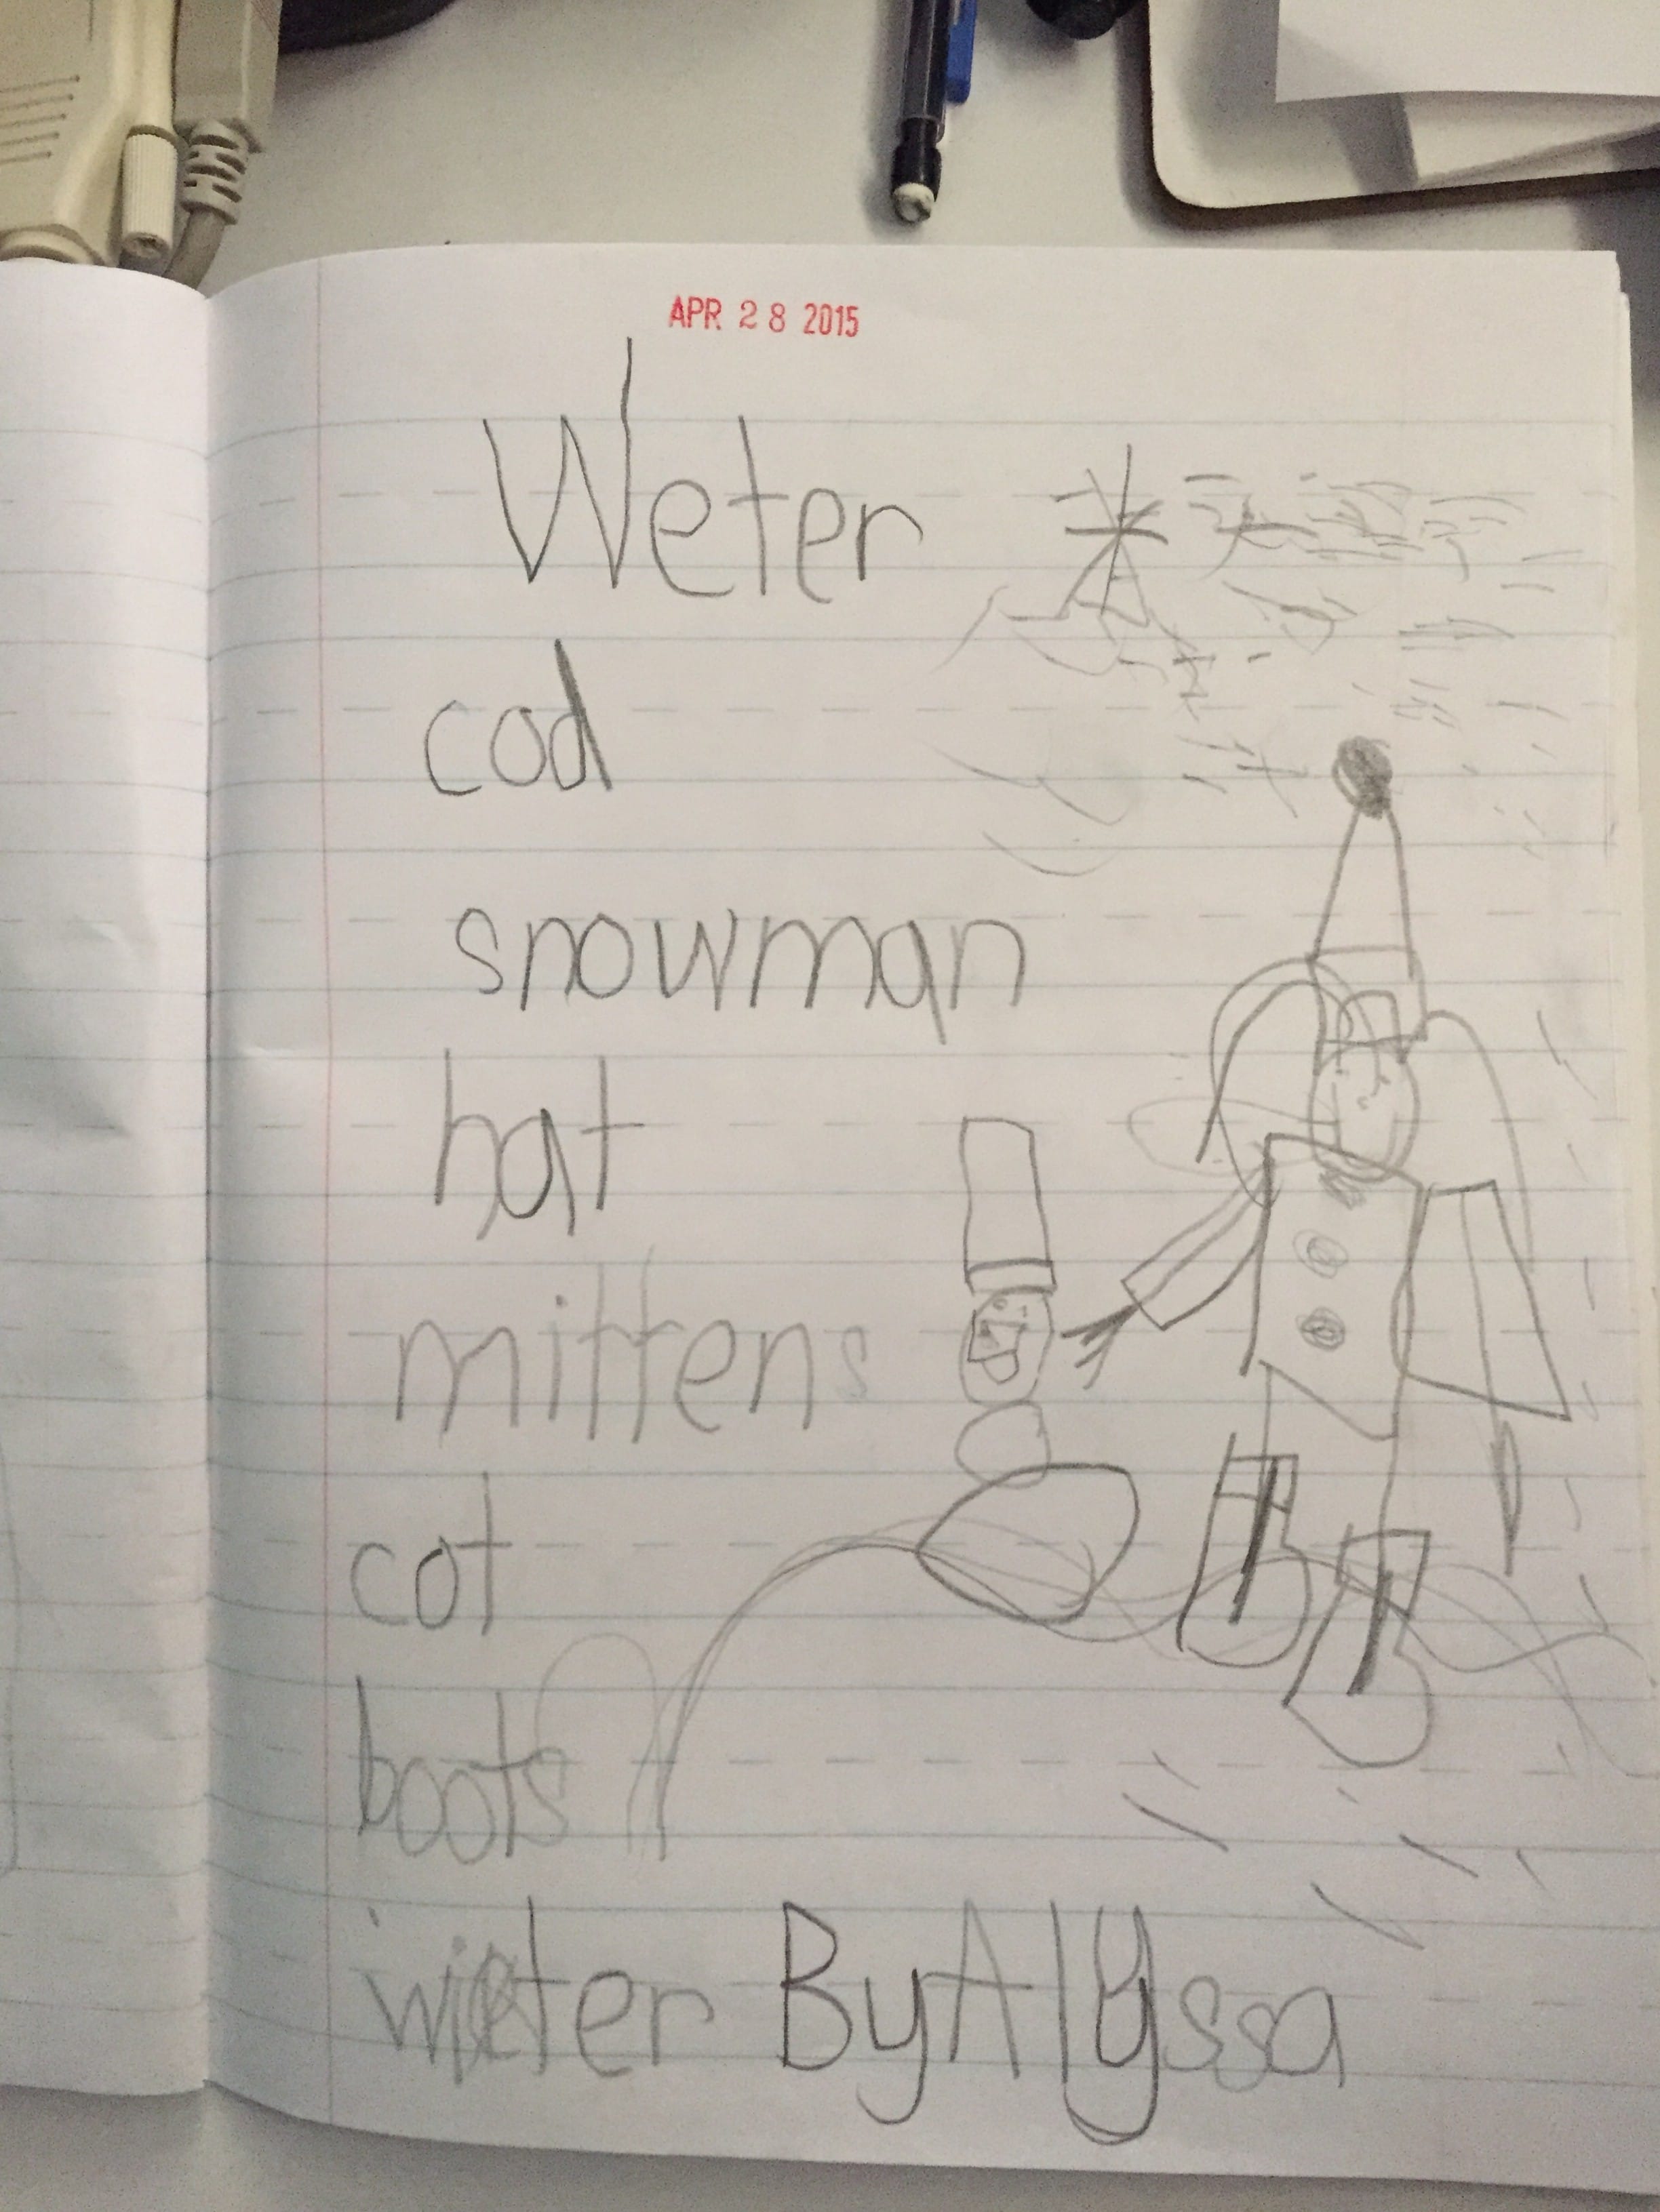 APR 28 2015
Weter
cod
snowman
hat
mittens
cot
boots
wieter By Alyssa